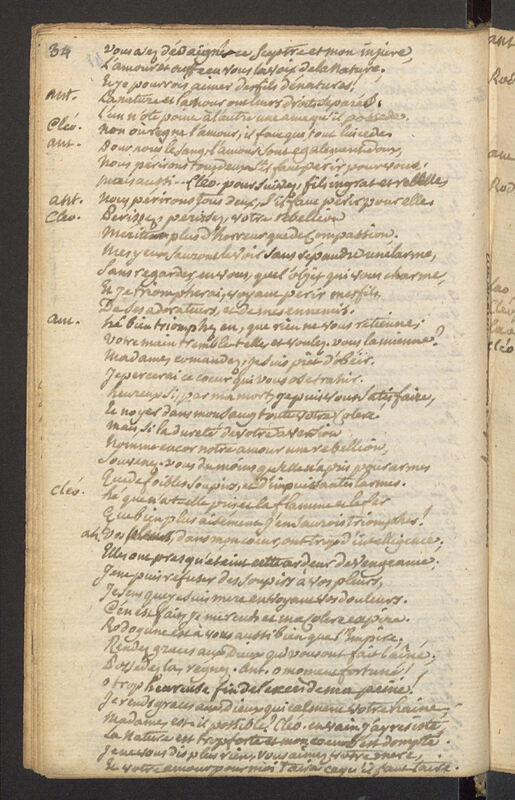 34 Vous avez dédaigné ce sceptre et mon injure,
L'amour étouffe en vous la voix de la Nature.
Et je pourrois aimer des fils dénaturés!
Ant. La nature et l'amour ont leurs droits séparés;
L'un n'ote point à l'autre une ame qu'il possede.
Cléo. non ou regne l'amour, il faut que tout lui cede.
ant. Leurs
Nous périrons tous deux s'il faut périr pour vous;
mais aussi -- Cleo. poursuivés, fils ingrat et rebelle,
ant. Nous périrons tous deux, s'il faut périr pour elle.
Cleo. Perissez, perissez, votre rebellion
Merite plus d'horreur que de Compassion.
Mes yeux sauront le voir sans repandre une larme,
Sans regarder en vous, quel objet qui vous charme,
Et je triompherai, voyant perir mes fils,
De ses adorateurs, et de mes ennemis.
ant. hé bien triomphez en, que rien ne vous retienne;
Votre main tremble t-elle, et voulez vous la mienne?
Madame, comandez, je suis prêt d'obéir.
Je percerai ce coeur qui vous ose trahir.
heureux si, par ma mort, je puis vous satisfaire,
Et noyer dans mon sang toute votre Colere
Mais si la dureté de votre aversion
Nomme encor notre amour une rebellion,
Souvenez-vous du moins qu'elle n'a pris pour armes
Que de foibles soupirs, et d'impuissantes larmes.
Cléo. ha que n'a t-elle pris et la flamme et le fer
Que bien plus aisément j'en saurois triompher!
ah, vos dans mon coeur, ont trop d'intelligence,
Elles ont presqu'éteint cette ardeur de vengeance.
Je ne puis refuser des soupirs à vos pleurs,
Je sens que je suis mere en voyant vos douleurs.
C'en est fait, je me rends et ma colere expire.
Rodogune est à vous aussi bien que l'Empire.
Rendez graces aux Dieux qui vous ont fait l'ainé;
Possedez la, regnez. Ant. o moment fortuné!
o trop heureuse fin de l'excès de ma peine!
Je rends graces aux dieux qui calment votre haine;
Madame, est-il possible? Cléo. en vain j'ay resisté,
la Nature est trop forte et mon coeur s'est dompté.
je ne vous dis plus rien, vous aimez votre mere,
Et votre amour pour moi taira ce qu'il faut taire.